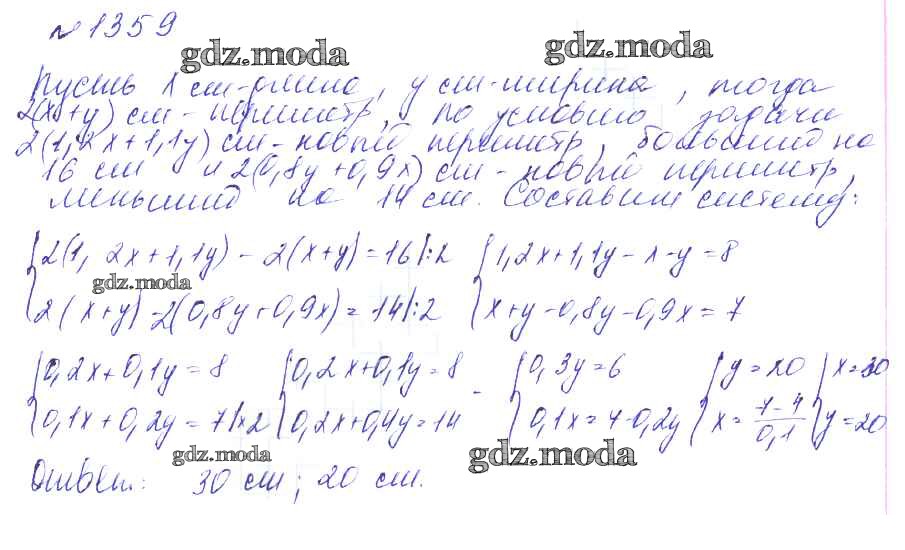 №1359
gdz.moda gdz.moda
Пусть x см-длина, y см-ширина, тогда
2(x+y) см - периметр, по условию задачи
2(1,2x+1,1y) см - новый периметр, больший на
16 см и 2(0,8y+0,9x) см - новый периметр,
меньший на 14 см. Составим систему:
2(1,2x+1,1y) - 2(x+y) = 16 |:2 1,2x+1,1y-x-y=8
gdz.moda
2(x+y) - 2(0,8y+0,9x) = 14 |:2 x+y-0,8y-0,9x=7
0,2x+0,1y=8 0,2x+0,1y=8 - 0,3y=6 y=20 x=30
0,1x+0,2y=7 |x2 0,2x+0,4y=14 0,1x=7-0,2y x=7-4/0,1 y=20
gdz.moda gdz.moda
Ответ: 30 см; 20 см.